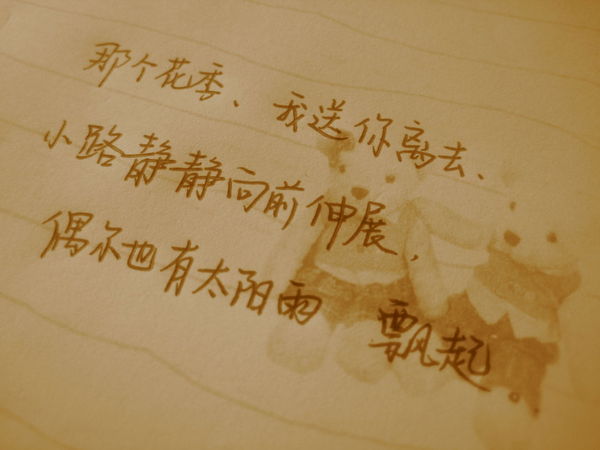 那个花季、我送你离去、
小路静静向前伸展，
偶尔也有太阳雨 飘起。